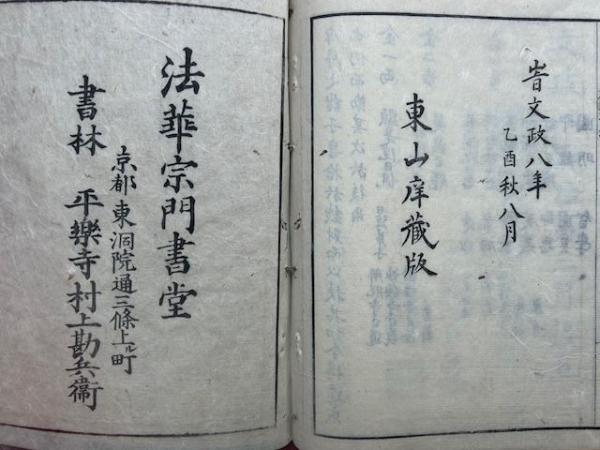 峕文政八年
乙酉秋八月
東山庠藏版
法華宗門書堂
京都東洞院通三條上ル町
書林 平樂寺村上勘兵衞